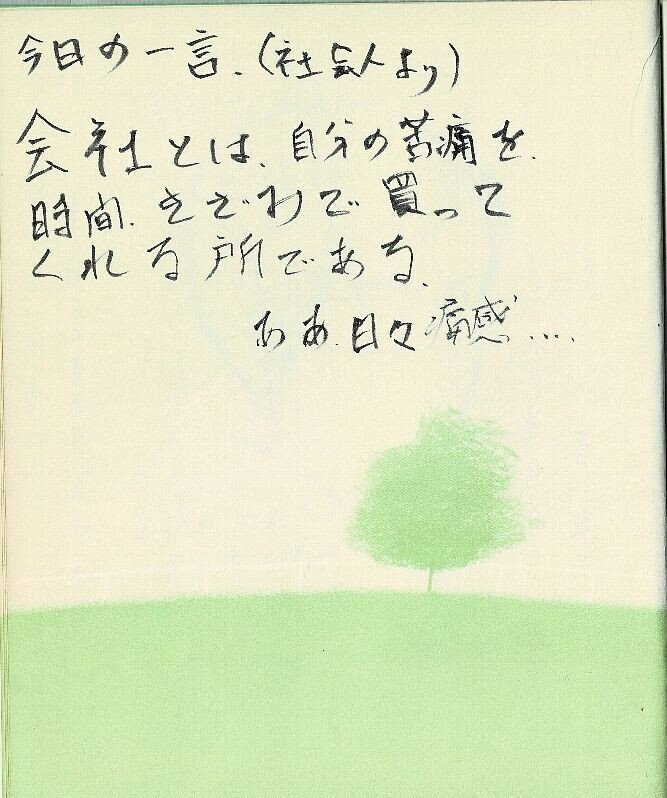 今日の一言.(社会人より)
会社とは、自分の苦痛を、
時間、きざみで買って
くれる所である。
ああ、日々痛感....